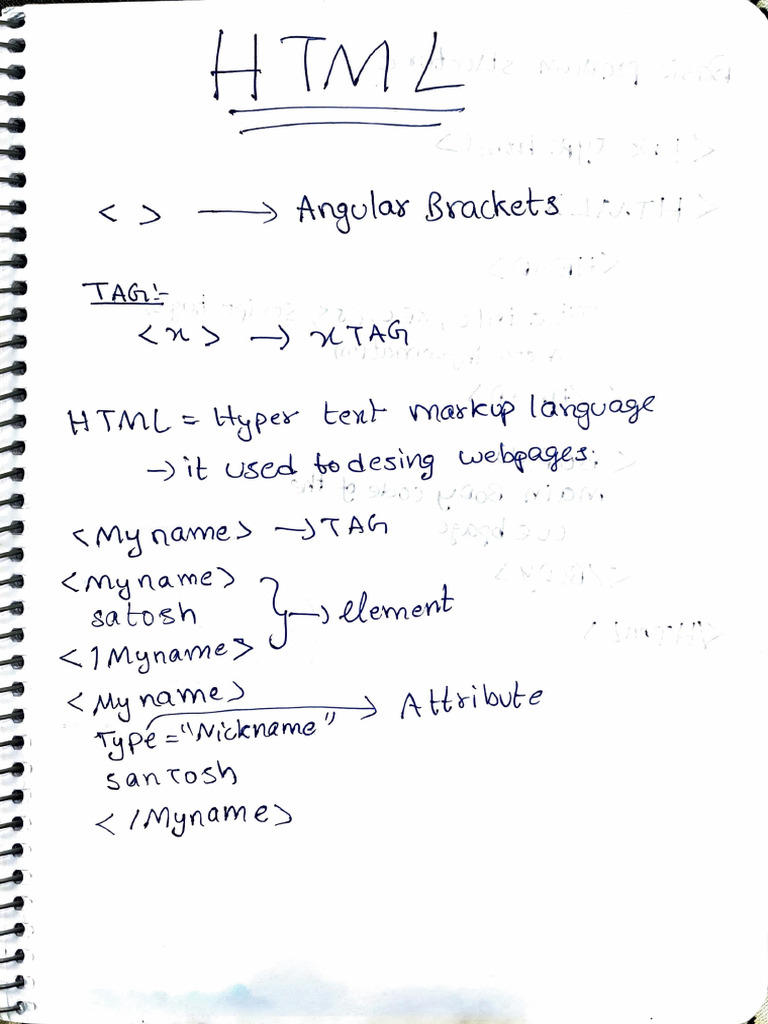 HTML
< > → Angular Brackets
TAG:-
<x> → x TAG
HTML = Hyper text markup language
→ it used to desing webpages.
<My name> → TAG
<Myname>
satosh
</Myname>
→ element
<My name>
Type="Nickname" → Attribute
santosh
</Myname>